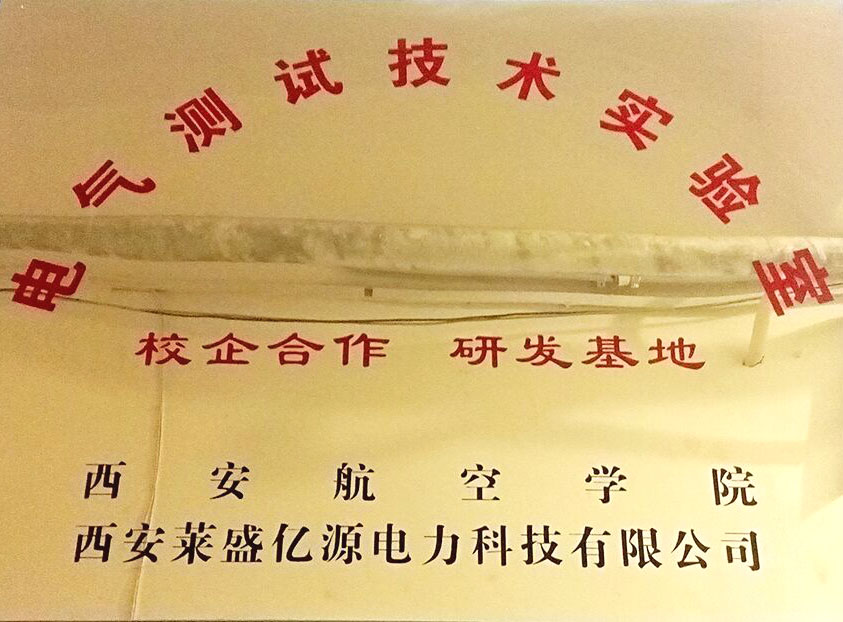 电气测试技术实验室
校企合作 研发基地
西安航空学院
西安莱盛亿源电力科技有限公司